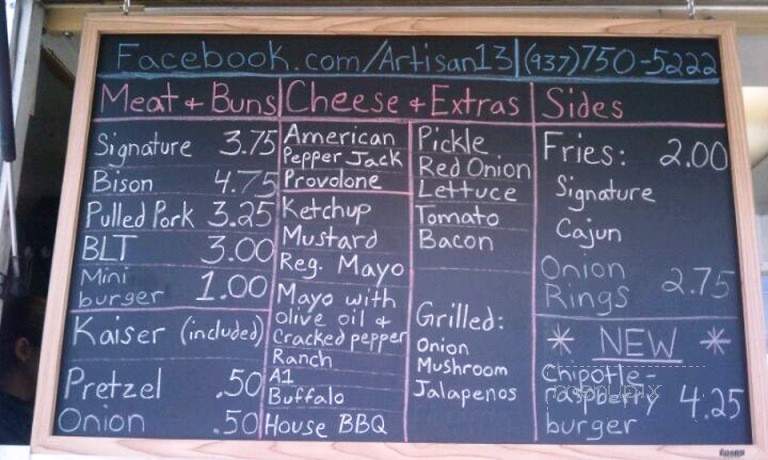 Facebook.com/Artisan13 (937)750-5222
Meat & Buns
Signature 3.75
Bison 4.75
Pulled Pork 3.25
BLT 3.00
Mini
burger 1.00
Kaiser (included)
Pretzel .50
Onion .50
Cheese & Extras
American
Pepper Jack
Provolone
Ketchup
Mustard
Reg. Mayo
Mayo with
olive oil &
Cracked pepper
Ranch
A1
Buffalo
House BBQ
Pickle
Red Onion
Lettuce
Tomato
Bacon
Grilled:
Onion
Mushroom
Jalapenos
Sides
Fries: 2.00
Signature
Cajun
Onion
Rings 2.75
* NEW *
Chipotle-
raspberry 4.25
burger